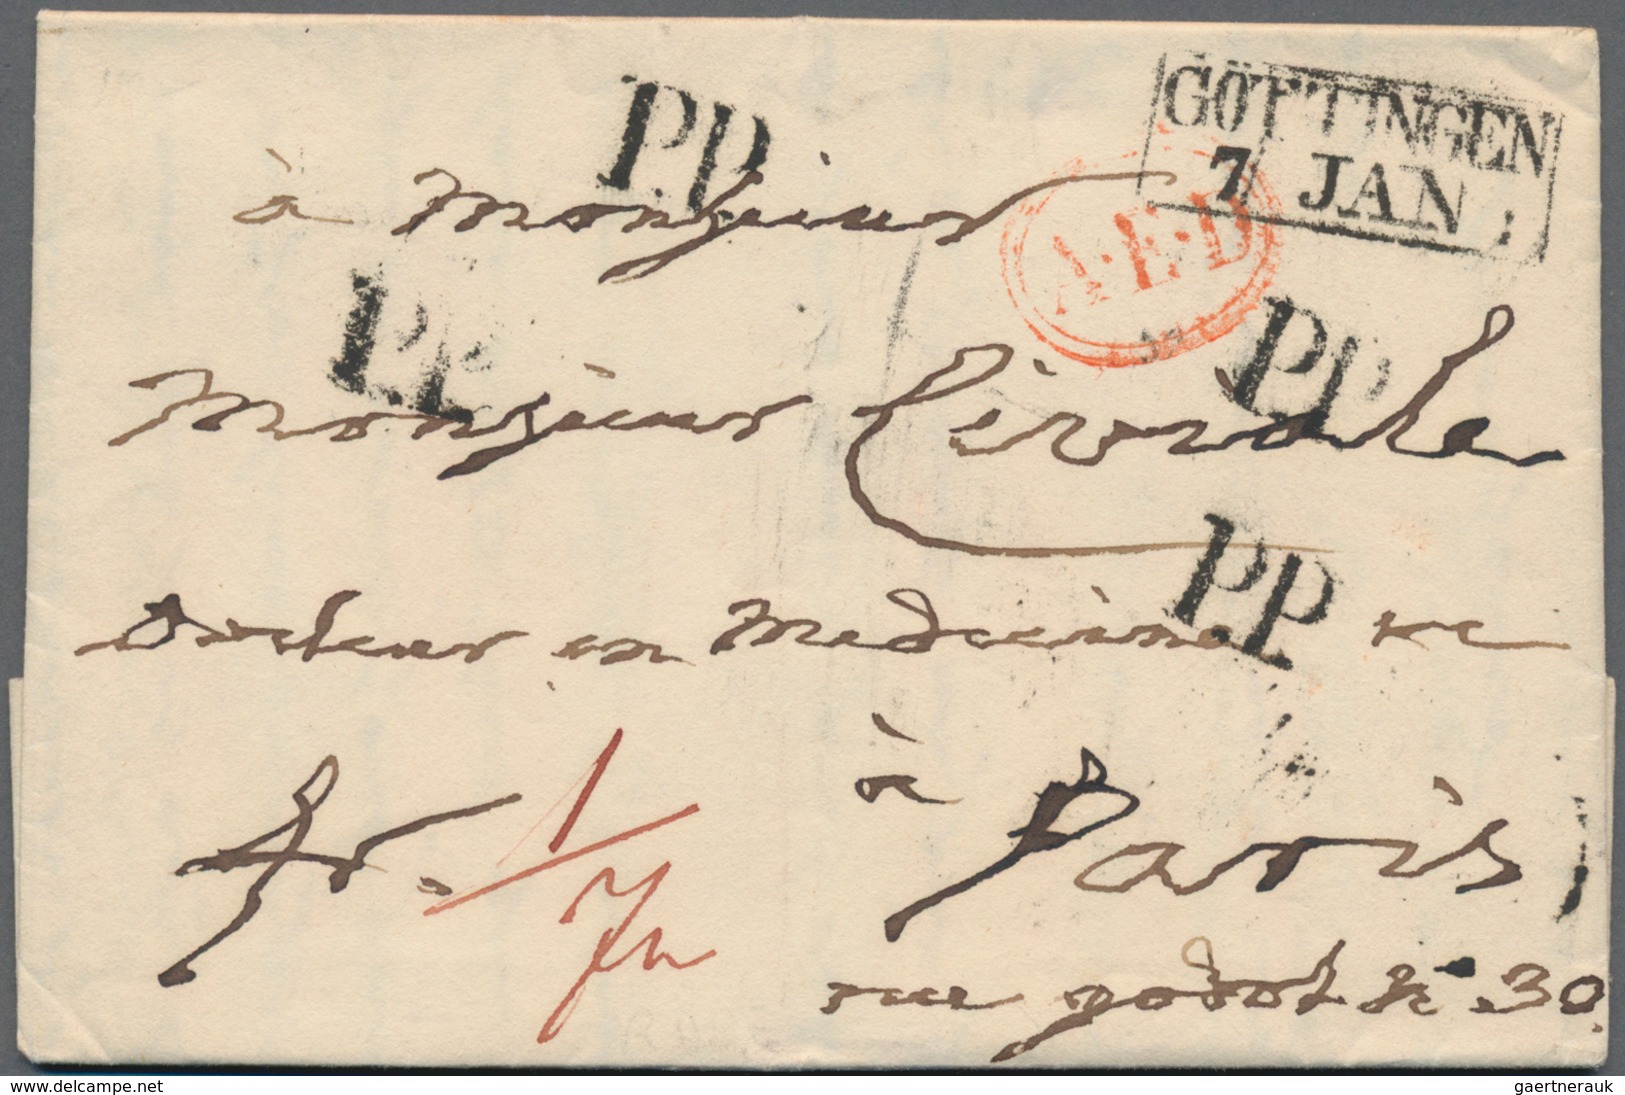 GÖTTINGEN
7 JAN
P.P.
à Monsieur
A.E.D
P.P.
P.P.
Monsieur Civiale
P.P.
Docteur en Medecine &c
à
fr. 1/7
Paris
rue godot N 30.
www.delcampe.net
gaertnerauk